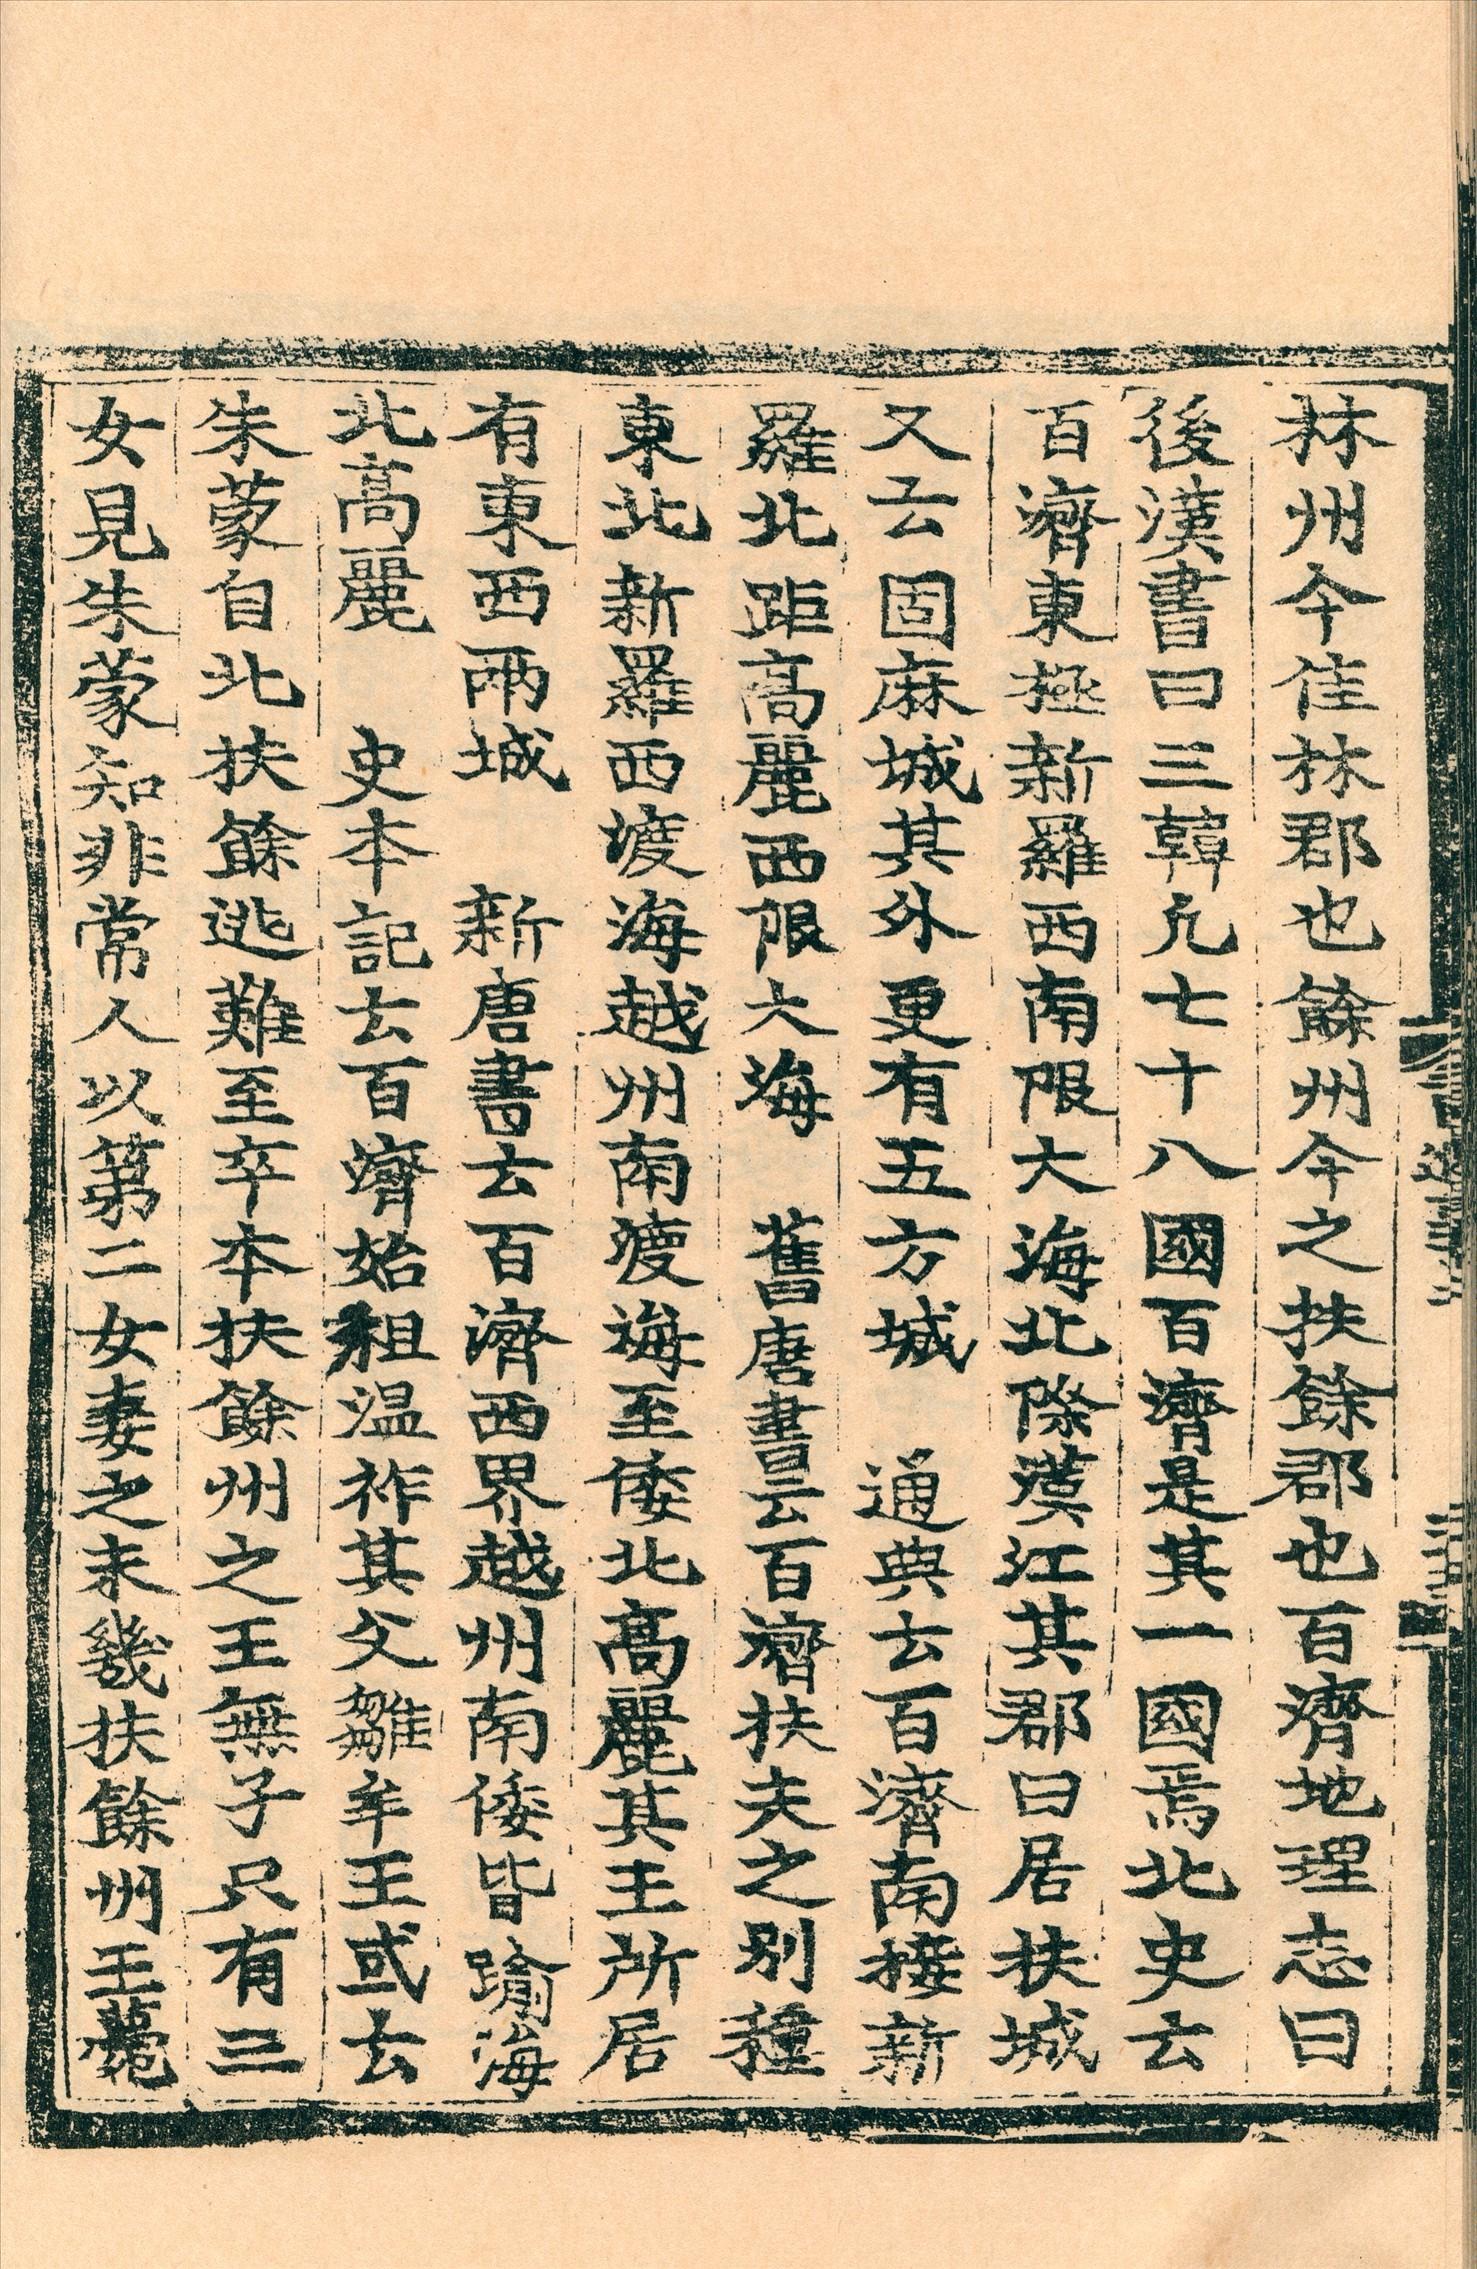 林州今佳林郡也餘州今之扶餘郡也百濟地理志曰
後漢書曰三韓九七十八國百濟是其一國焉北史云
百濟東極新羅西南限大海北際漢江其郡曰居扶城
又云固麻城其外更有五方城　通典云百濟南接新
羅北距高麗西限大海　舊唐書云百濟扶夫之別種
東北新羅西渡海越州南渡海至倭北高麗其王所居
有東西兩城　新唐書云百濟西界越州南倭皆踰海
北高麗　史本記云百濟始祖温祚其父雛牟王或云
朱蒙自北扶餘逃難至卒本扶餘州之王無子只有三
女見朱蒙知非常人以第二女妻之未幾扶餘州王薨